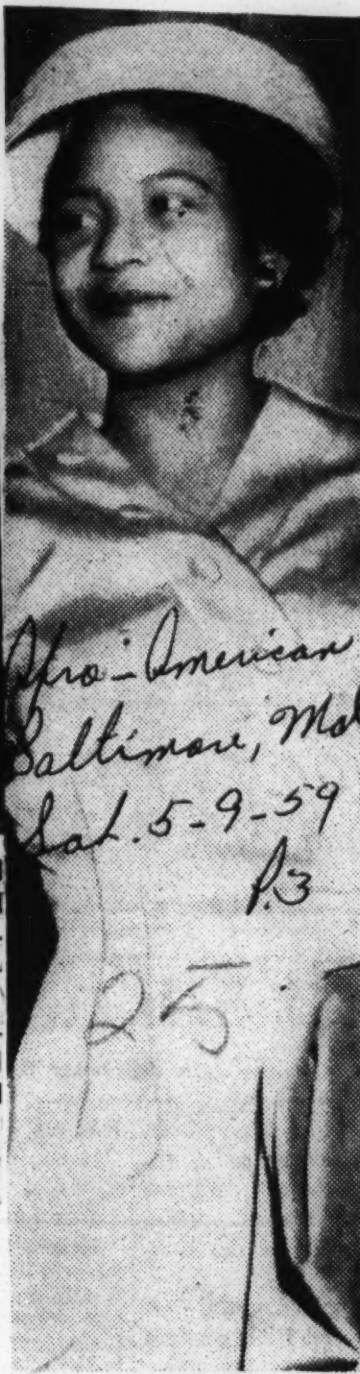 Afro-American
Baltimore, Md
Sat. 5-9-59
P.3
25